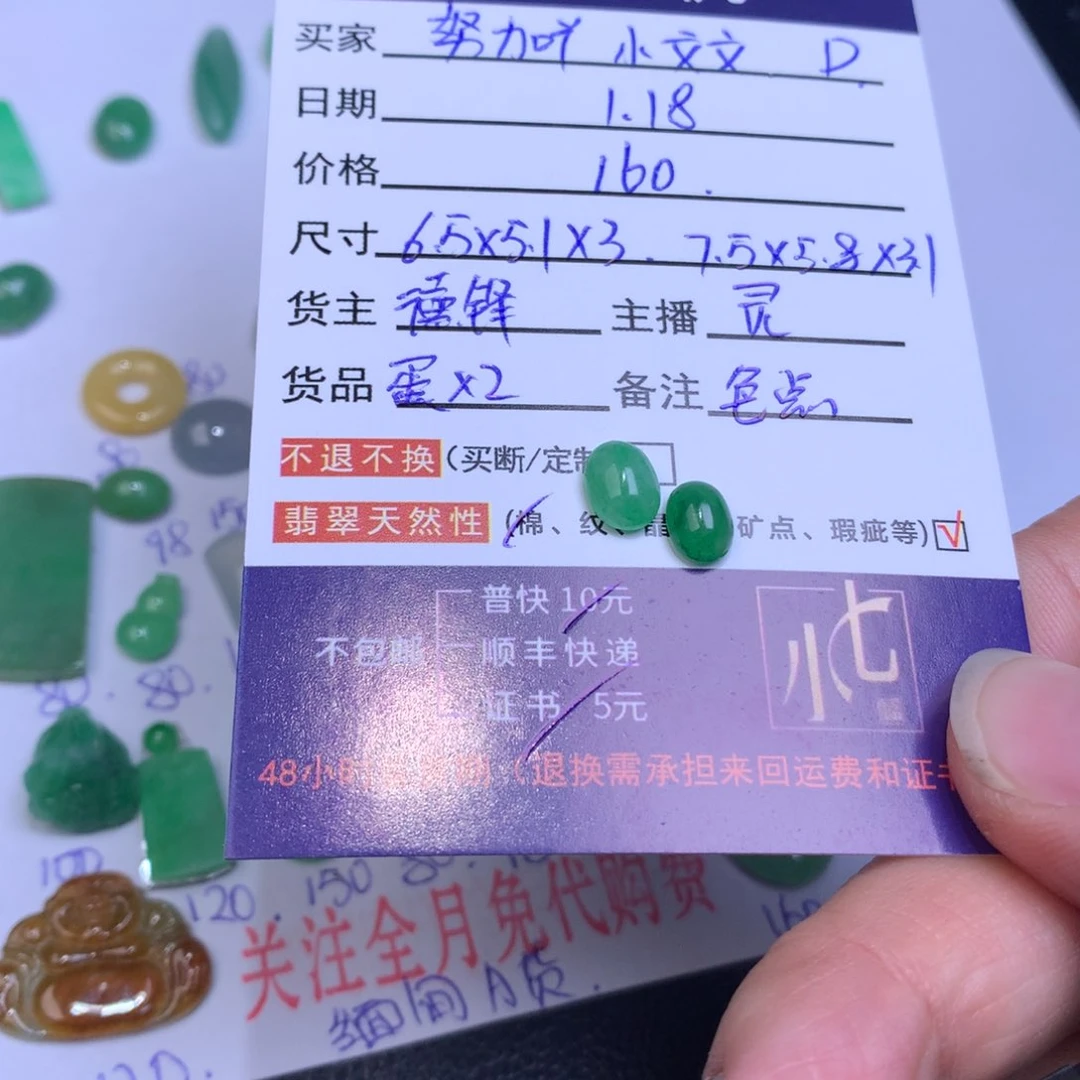 买家 努力吖 小文文 D
日期 1.18
价格 160.
尺寸 6.5×5.1×3. 7.5×5.8×3.1
货主 德锋 主播 灵
货品 蛋×2 备注 色点
不退不换(买断/定制
翡翠天然性 (棉、纹、晶 矿点、瑕疵等)√
普快 10元
不包邮 顺丰快递
证书 5元
小七
48小时 (退换需承担来回运费和证书
80
98
150
80. 80.
100
120. 150 80.
160
关注全月免代购费
缅甸A货.